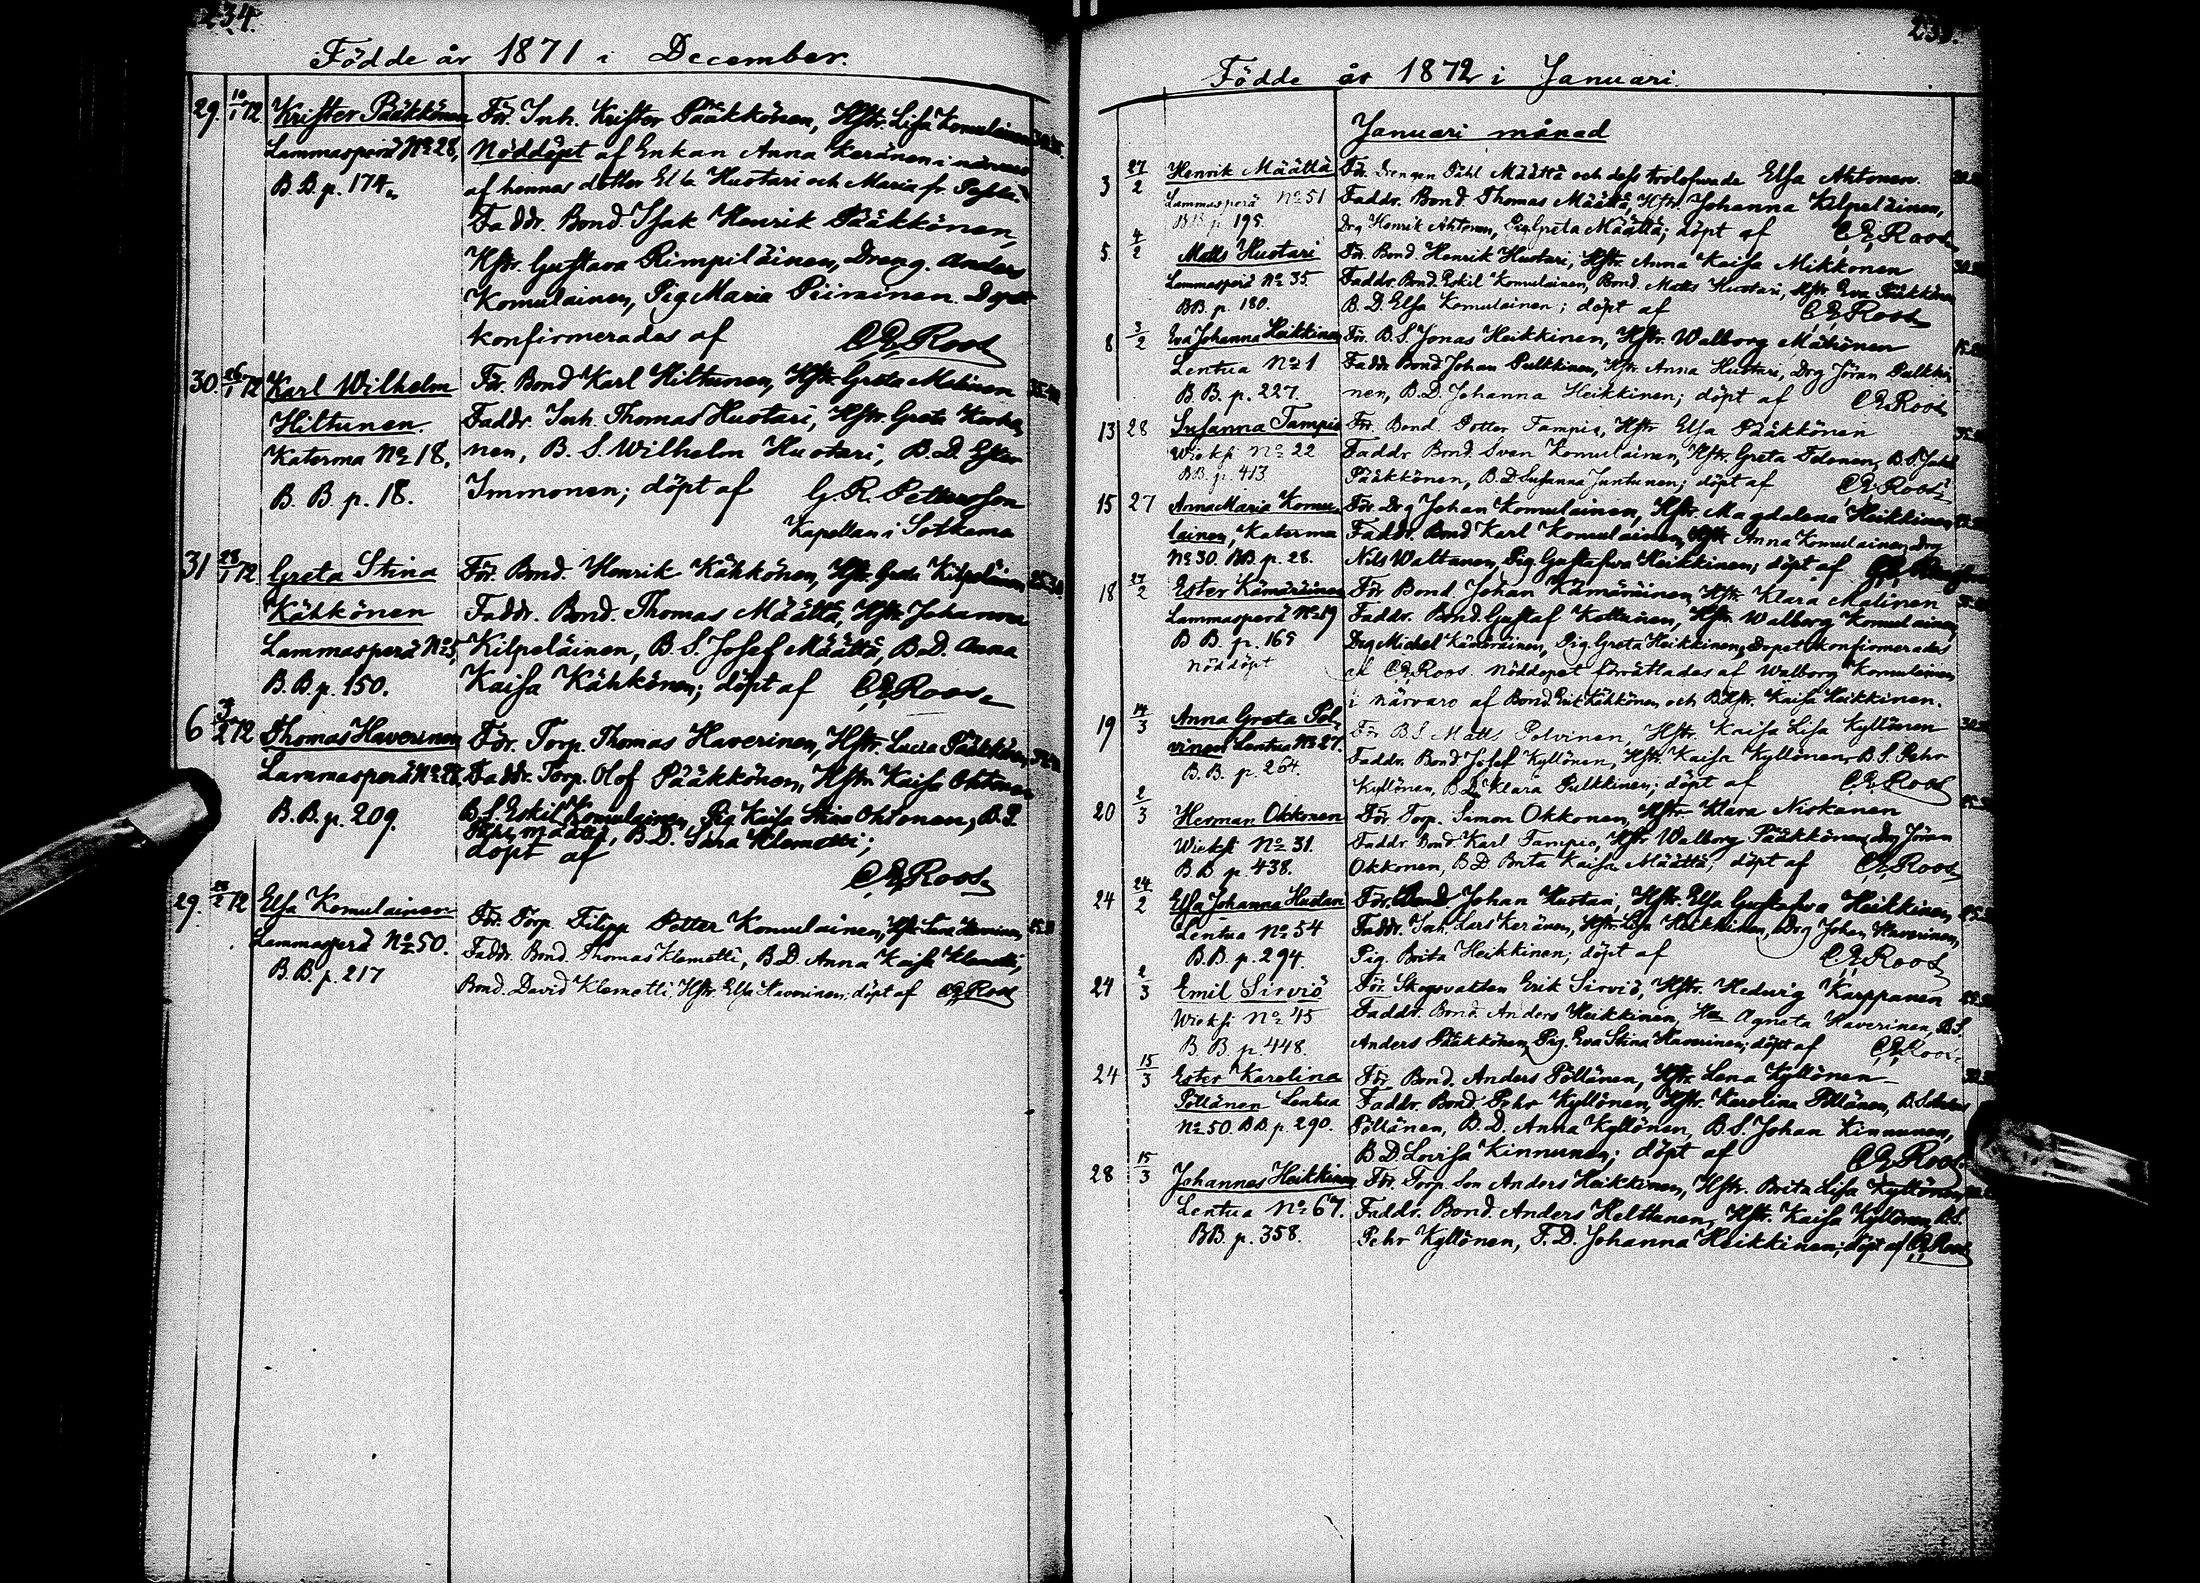 234.
Födde år 1871 i December.
29. 10/1 72 Krister Pääkkönen För. Inh. Krister Pääkkönen, Hstr. Lisa Komulainen
Lammasperä No 28, Nöddöpt af Enkan Anna Keränen i närvaro
B.B. p. 174. af hennes dotter Huotari och Maria
Faddr. Bond. Isak Henrik Pääkkönen,
Hstr. Gustava Rimpiläinen, Dreng. Anders
Komulainen, Pig Maria Piirainen. Dopet
konfirmerades af Roos
30. 26/1 72 Karl Wilhelm För. Bond Karl Hiltunen, Hstr. Greta Malinen
Hiltunen. Faddr. Inh. Thomas Huotari, Hstr. Greta
Katerma No 18. nen, B. S. Wilhelm Huotari, B. D. Ester
B. B p. 18. Immonen; döpt af G. R. Pettersson
Kapellan i Sotkamo
31 28/1 72 Greta Stina För. Bond. Henrik Kähkönen, Hstr. Greta Kilpeläinen
Kähkönen Faddr. Bond. Thomas Määttä, Hstr. Johanna
Lammasperä No 5, Kilpeläinen, B. S. Josef Määttä, B. D. Anna
B. B. p. 150. Kaisa Kähkönen; döpt af Roos
6 3/2 72 Thomas Haverinen För. Torp. Thomas Haverinen, Hstr. Lucia Pääkkönen,
Lammasperä Faddr. Torp. Olof Pääkkönen, Hstr. Kaisa Ohtonen
B. B. p. 209. B. S. Eskil Komulainen, Pig Kaisa Stina Ohtonen, B. S.
Pehr Määttä, B. D. Sara Klemetti;
döpt af
Roos
29. 72 Elsa Komulainen För. Torp Filipp Petter Komulainen, Hstr. Haverinen
Lammasperä No 50. Faddr. Bond. Thomas Klemetti, B. D. Anna Kaisa Klemetti,
B. B p. 217 Bond. David Klemetti, Hstr. Elsa Haverinen; döpt af Roos
Födde år 1872 i Januari.
Januari månad
3 27/2 Henrik Määttä För. Drengen Påhl Määttä och dess trolofwade Elsa Ahtonen.
Lammasperä No 51 Faddr. Bond. Thomas Määttä, Hstr. Johanna Kilpeläinen,
B B. p. 195. Drg Henrik Ahtonen, Pig Greta Määttä; döpt af Roos
5. 4/2 Matts Huotari För. Bond. Henrik Huotari, Hstr. Anna Kaisa Mikkonen
Lammasperä No 35. Faddr. Bond. Eskil Komulainen, Bond. Matts Huotari, Hstr. Eva Pääkkönen
BB. p. 180. B. D. Elsa Komulainen; döpt af Roos
8 3/2 Eva Johanna Heikkinen För. B. S. Jonas Heikkinen, Hstr. Walborg Mähönen
Lentua No 1 Faddr. Bond Johan Pulkkinen, Hstr Anna Huotari, Drg Jöran Pulkki-
B B. p. 227. nen, B. D. Johanna Heikkinen; döpt af Roos
13 28 Susanna Tampio För. Bond. Petter Tampio, Hstr Elsa Pääkkönen
Wieksi No 22 Faddr. Bond. Sven Komulainen, Hstr. Greta Tolonen, B. S.
BB. p. 413. Pääkkönen, B. D. Susanna Juntunen; döpt af Roos
15 27 Anna Maria Komu- För. Drg Johan Komulainen, Hstr. Magdalena Heikkinen
lainen, Katerma Faddr. Bond. Karl Komulainen, Hstr Anna Komulainen, Drg
No 30. BB. p. 28. Nils Waltanen, Pig Gustafwa Heikkinen; döpt af
18 27/2 Ester Kämäräinen För Bond. Johan Kämäräinen Hstr. Klara Malinen
Lammasperä No 19 Faddr. Bond. Gustaf Kottainen, Hstr. Walborg Komulainen,
B B. p. 165 Drg Michel Kämäräinen, Pig Greta Heikkinen; Dopet konfirmerades
nöddöpt af Roos. Nöddopet förrättades af Walborg Komulainen
i närvaro af Bond. Erik Kähkönen och B.Hstr. Kaisa Heikkinen.
19 14/3 Anna Greta Pol- För B. S. Matts Polvinen, Hstr. Kaisa Lisa Kyllönen
vinen Lentua No 27. Faddr. Bond Josef Kyllönen, Hstr. Kaisa Kyllönen, B. S. Pehr
B. B. p. 264. Kyllönen, B. D. Klara Pulkkinen; döpt af Roos
20 2/3 Herman Okkonen För Torp. Simon Okkonen, Hstr. Klara Niskanen
Wieksi No 31. Faddr. Bond. Karl Tampio, Hstr. Walborg Pääkkönen, Drg Jöran
B. B p. 438. Okkonen, B. D Brita Kaisa Määttä; döpt af Roos
24 24/2 Elsa Johanna Huotari För. Bond Johan Huotari, Hstr. Elsa Gustafwa Heikkinen
Lentua No 54 Faddr. Inh. Lars Keränen, Hstr. Lisa Heikkinen, Drg Johan Haverinen,
B. B. p. 294. Pig. Brita Heikkinen; döpt af Roos
24 2/3 Emil Sirviö För. Skogsvakten Erik Sirviö, Hstr. Hedwig Karppanen
Wieksi No 45 Faddr. Bond. Anders Heikkinen, Agneta Haverinen, B. S.
B. B. p. 448. Anders Pääkkönen, Pig. Eva Stina Haverinen; döpt af Roos
24 15/3 Ester Karolina För. Bond. Anders Pöllänen, Hstr. Lena Kyllönen
Pöllänen Lentua Faddr. Bond. Pehr Kyllönen, Hstr. Karolina Pöllänen, B. S.
No 50. BB. p. 290. Pöllänen, B. D. Anna Kyllönen, B. S. Johan Kinnunen,
B D. Lovisa Kinnunen; döpt af Roos
28 15/3 Johannes Heikkinen För. Torp. Son Anders Heikkinen, Hstr. Brita Lisa Kyllönen
Lentua No 67. Faddr. Bond. Anders Helttunen, Hstr. Kaisa Kyllönen, B. S.
BB. p. 358. Pehr Kyllönen, T. D. Johanna Heikkinen; döpt af Roos